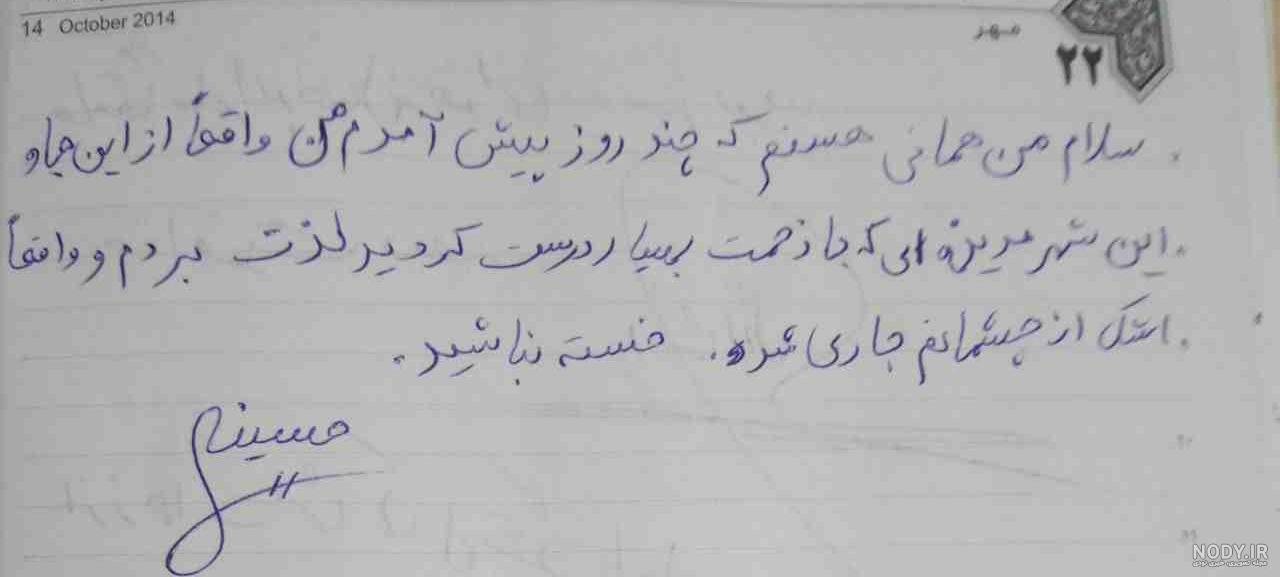 14 October 2014
مهر
۲۲
سلام من همانی هستم که چند روز پیش آمدم من واقعاً از این جا و
این شهر مدینه ای که با زحمت بسیار درست کردید لذت بردم و واقعاً
اشک از چشمانم جاری شده. خسته نباشید.
حسینی
NODY.IR